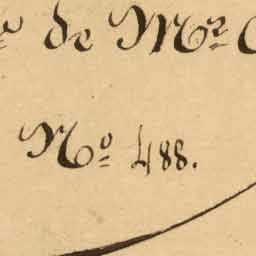 de Mr.
No. 488.